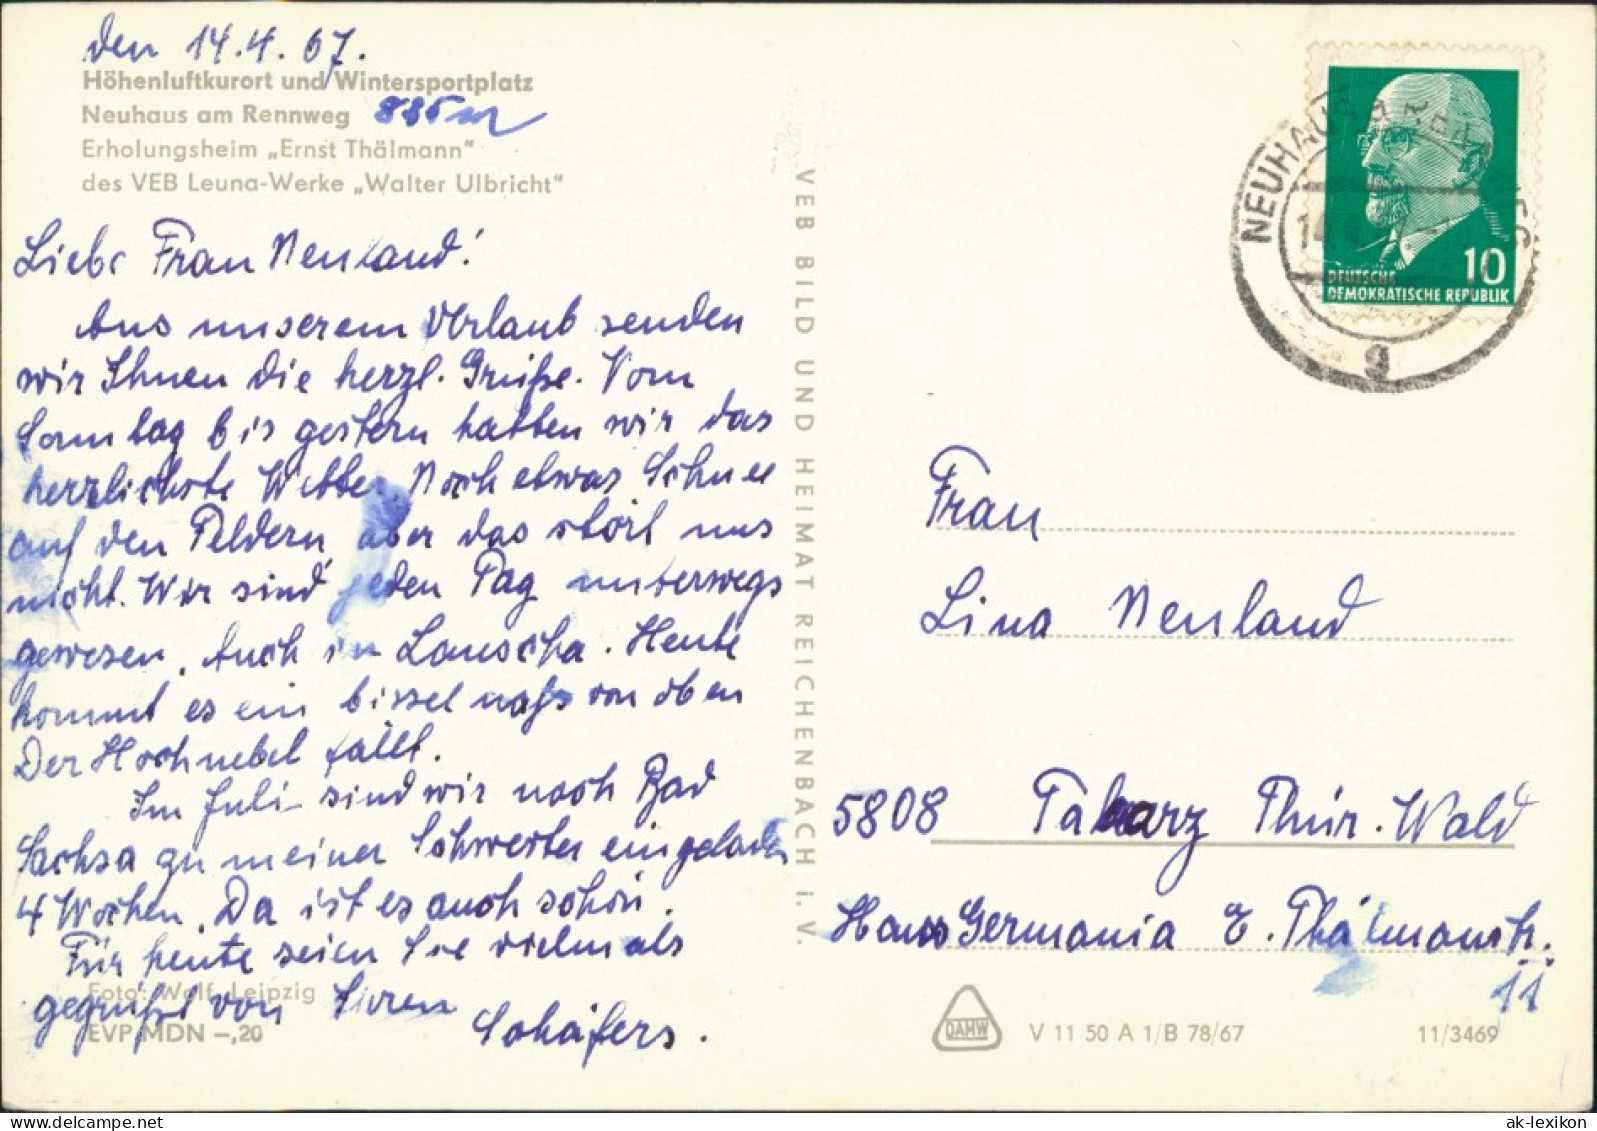 den 14.4.67.
Höhenluftkurort und Wintersportplatz
Neuhaus am Rennweg 835 m
Erholungsheim „Ernst Thälmann"
des VEB Leuna-Werke „Walter Ulbricht"
Liebe Frau Neuland!
Aus unserem Urlaub senden
wir Ihnen die herzl. Grüße. Vom
Sonntag bis gestern hatten wir das
herrlichste Wetter. Noch etwas Schnee
auf den Feldern, aber das stört uns
nicht. Wir sind jeden Tag unterwegs
gewesen. Auch in Lauscha. Heute
kommt es ein bissel naß von oben
Der Hochnebel fällt.
Im Juli sind wir nach Bad
Sachsa zu meiner Schwester eingeladen
4 Wochen. Da ist es auch schön.
Für heute seien Sie vielmals
gegrüßt von Ihren
Schäfers.
Foto: Wolf, Leipzig
EVP MDN –,20
VEB BILD UND HEIMAT REICHENBACH i. V.
NEUHAUS
g
10
DEUTSCHE
DEMOKRATISCHE REPUBLIK
Frau
Lina Neuland
5808 Tabarz Thür. Wald
Haus Germania E. Thälmannstr.
11
DAMW
V 11 50 A 1/B 78/67
11/3469
ak-lexikon